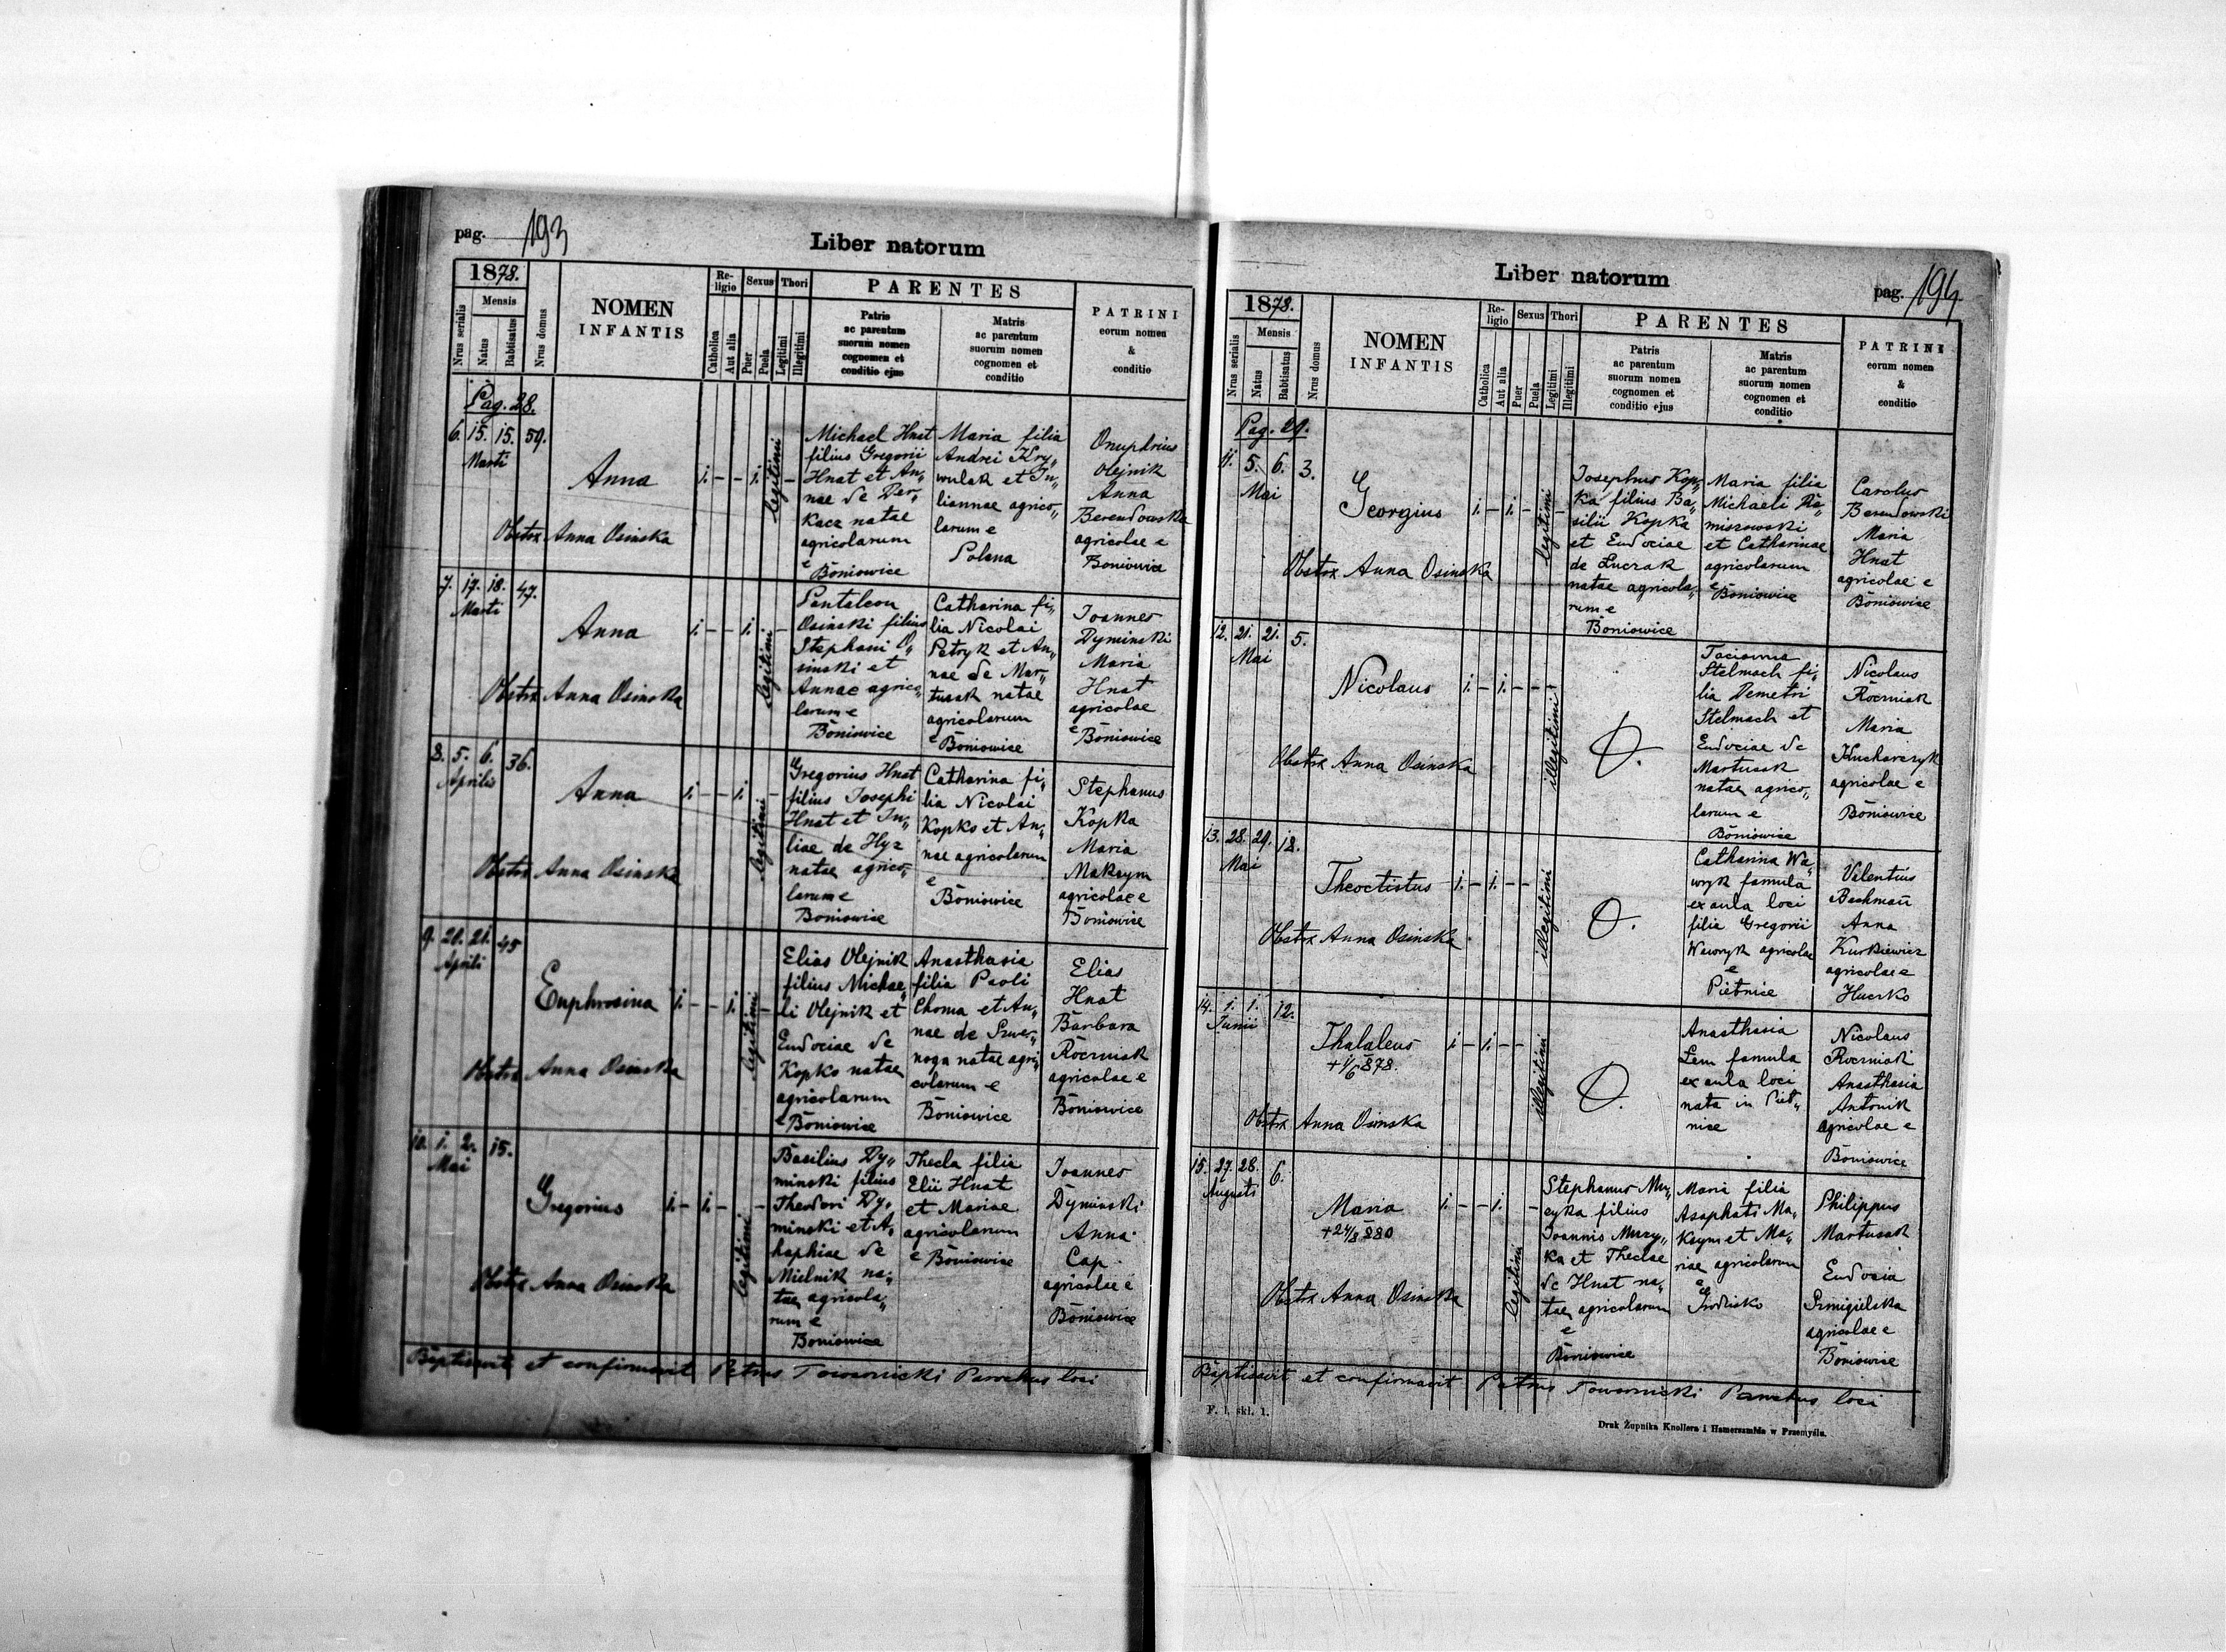 pag. 193
Liber natorum
1878.
Nrus serialis
Mensis
Natus
Babtisatus
Nrus domus
NOMEN
INFANTIS
Re-
ligio
Catholica
Aut alia
Sexus
Puer
Puela
Thori
Legitimi
Illegitimi
PARENTES
Patris
ac parentum
suorum nomen
cognomen et
conditio ejus
Matris
ac parentum
suorum nomen
cognomen et
conditio
PATRINI
eorum nomen
&
conditio
Pag. 28.
6. 15. 15. 59.
Marti
Anna
1. - - 1. legitimi -
Obstrx Anna Osinska
Michael Hnat
filius Gregorii
Hnat et An„
nae de Der„
kacz natae
agricolarum
e Boniowice
Maria filia
Andrei Kry„
wulak et Ju„
liannae agrico„
larum e
Polana
Onuphrius
Olejnik
Anna
Berendowska
agricolae e
Boniowice
7. 17. 18. 47.
Marti
Anna
1. - - 1. legitimi -
Obstrx Anna Osinska
Pantaleon
Osinski filius
Stephani O„
sinski et
Annae agrico„
larum e
Boniowice
Catharina fi„
lia Nicolai
Petryk et An„
nae de Mar„
tusak natae
agricolarum
e Boniowice
Joannes
Dyminski
Maria
Hnat
agricolae
e Boniowice
8. 5. 6. 36.
Aprilis
Anna
1. - - 1. legitimi -
Obstrx Anna Osinska
Gregorius Hnat
filius Josephi
Hnat et Ju„
liae de Hyz
natae agrico„
larum e
Boniowice
Catharina fi„
lia Nicolai
Kopko et An„
nae agricolarum
e
Boniowice
Stephanus
Kopka
Maria
Maksym
agricolae e
Boniowice
9. 20. 21. 45
Aprili
Euphrosina
1. - - 1. legitimi -
Obstrx Anna Osinska
Elias Olejnik
filius Michae„
li Olejnik et
Eudociae de
Kopko natae
agricolarum
e Boniowice
Anasthasia
filia Paoli
Choma et An„
nae de
natae agri„
colarum e
Boniowice
Elias
Hnat
Barbara
Roczniak
agricolae e
Boniowice
10. 1. 2. 15.
Mai
Gregorius
1. - 1. - legitimi -
Obstrx Anna Osinska
Basilius Dy„
minski filius
Theodori Dy„
minski et A„
haphiae de
Mielnik na„
tae agricola„
rum e
Boniowice
Thecla filia
Elii Hnat
et Mariae
agricolarum
e Boniowice
Joannes
Dyminski
Anna
Cap
agricolae e
Boniowice
Baptisavit et confirmavit Petrus Towarnicki Parochus loci
Liber natorum
pag. 194
1878.
Nrus serialis
Mensis
Natus
Babtisatus
Nrus domus
NOMEN
INFANTIS
Re-
ligio
Catholica
Aut alia
Sexus
Puer
Puela
Thori
Legitimi
Illegitimi
PARENTES
Patris
ac parentum
suorum nomen
cognomen et
conditio ejus
Matris
ac parentum
suorum nomen
cognomen et
conditio
PATRINI
eorum nomen
&
conditio
Pag. 29.
11. 5. 6. 3.
Mai
Georgius
1. - 1. - legitimi -
Obstrx Anna Osinska
Josephus Kop„
ka filius Ba„
silii Kopka
et Eudociae
de Luczak
natae agricola„
rum e
Boniowice
Maria filia
Michaeli
et Catharinae
agricolarum
e Boniowice
Carolus
Berendowski
Maria
Hnat
agricolae e
Boniowice
12. 21. 21. 5.
Mai
Nicolaus
1. - 1. - - illegitimi
Obstrx Anna Osinska
Tacianna
Stelmach fi„
lia Demetri
Stelmach et
Eudociae de
Martusak
natae agrico„
larum e
Boniowice
Nicolaus
Roczniak
Maria
Kucharczyk
agricolae e
Boniowice
13. 28. 29. 18.
Mai
Theoctistus
1. - 1. - - illegitimi
Obstrx Anna Osinska
Catharina Wa„
wryk famula
ex aula loci
filia Gregorii
Wawryk agricolae
e
Pietnice
Valentius
Bachman
Anna
Kurkiewicz
agricolae e
Huczko
14. 1. 1. 12.
Junii
Thalaleus
+ 1/6 878.
1. - 1. - - illegitimi
Obstrx Anna Osinska
Anasthasia
Lem famula
ex aula loci
nata in Piet„
nice
Nicolaus
Roczniak
Anasthasia
Antonik
agricolae e
Boniowice
15. 27. 28. 6.
Augusti
Maria
+ 24/8 880
1. - - 1. legitimi -
Obstrx Anna Osinska
Stephanus Mu„
zyka filius
Joannis Muzy„
ka et Theclae
de Hnat na„
tae agricolarum
e
Boniowice
Maria filia
Asaphati Ma„
ksym et Ma„
riae agricolarum
e
Grodzisko
Philippus
Martusak
Eudocia
Szmigielska
agricolae e
Boniowice
Baptisavit et confirmavit Petrus Towarnicki Parochus loci
F. 1. skł. 1.
Druk Żupnika Knollera i Hamerszmida w Przemyślu.